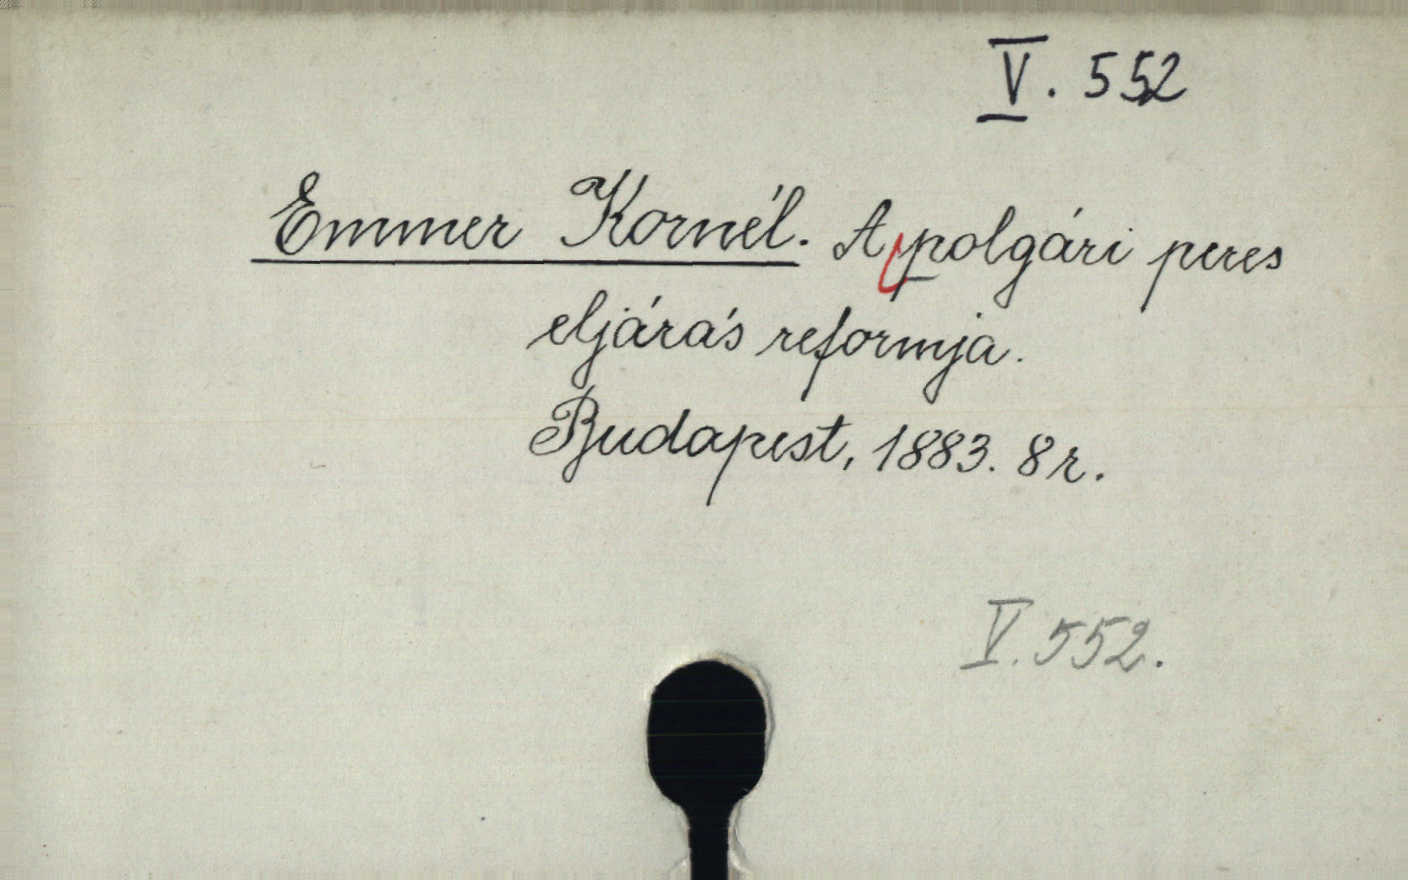 V. 552
Emmer Kornél. A polgári peres
eljárás reformja.
Budapest, 1883. 8r.
V. 552.